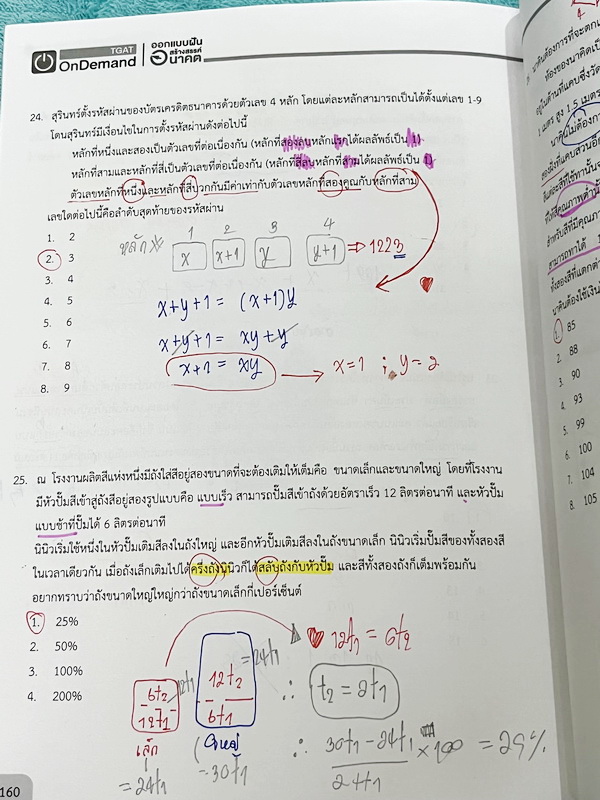 TGAT
OnDemand
ออกแบบฝัน
สร้างสรรค์
อนาคต
24. สุรินทร์ตั้งรหัสผ่านของบัตรเครดิตธนาคารด้วยตัวเลข 4 หลัก โดยแต่ละหลักสามารถเป็นได้ตั้งแต่เลข 1-9
โดนสุรินทร์มีเงื่อนไขในการตั้งรหัสผ่านดังต่อไปนี้
หลักที่หนึ่งและสองเป็นตัวเลขที่ต่อเนื่องกัน (หลักที่สองลบหลักแรกได้ผลลัพธ์เป็น 1)
หลักที่สามและหลักที่สี่เป็นตัวเลขที่ต่อเนื่องกัน (หลักที่สี่ลบหลักที่สามได้ผลลัพธ์เป็น 1)
ตัวเลขหลักที่หนึ่งและหลักที่สี่บวกกันมีค่าเท่ากับตัวเลขหลักที่สองคูณกับหลักที่สาม
เลขใดต่อไปนี้คือลำดับสุดท้ายของรหัสผ่าน
1. 2
2. 3
3. 4
4. 5
5. 6
6. 7
7. 8
8. 9
1 2 3 4
หลัก
x x+1 y y+1 ⇒ 1223
x+y+1 = (x+1)y
x+y+1 = xy+y
x+1 = xy → x=1 ; y=2
25. ณ โรงงานผลิตสีแห่งหนึ่งมีถังใส่สีอยู่สองขนาดที่จะต้องเติมให้เต็มคือ ขนาดเล็กและขนาดใหญ่ โดยที่โรงงาน
มีหัวปั๊มสีเข้าสู่ถังสีอยู่สองรูปแบบคือ แบบเร็ว สามารถปั๊มสีเข้าถังด้วยอัตราเร็ว 12 ลิตรต่อนาที และหัวปั๊ม
แบบช้าที่ปั๊มได้ 6 ลิตรต่อนาที
นินิวเริ่มใช้หนึ่งในหัวปั๊มเติมสีลงในถังใหญ่ และอีกหัวปั๊มเติมสีลงในถังขนาดเล็ก นินิวเริ่มปั๊มสีของทั้งสองสี
ในเวลาเดียวกัน เมื่อถังเล็กเติมไปได้ครึ่งถังนินิวก็ได้สลับถังกับหัวปั๊ม และสีทั้งสองถังก็เต็มพร้อมกัน
อยากทราบว่าถังขนาดใหญ่ใหญ่กว่าถังขนาดเล็กกี่เปอร์เซ็นต์
1. 25%
2. 50%
3. 100%
4. 200%
12t₁ = 6t₂
∴ t₂ = 2t₁
6t₂
12t₁
12t₁
12t₂
6t₁
= 24t₁
เล็ก
= 24t₁
ใหญ่
= 30t₁
∴ 30t₁ - 24t₁ × 100 = 25%
24t₁
160
1. 85
2. 88
3. 90
4. 93
5. 99
6. 100
7. 104
8. 105